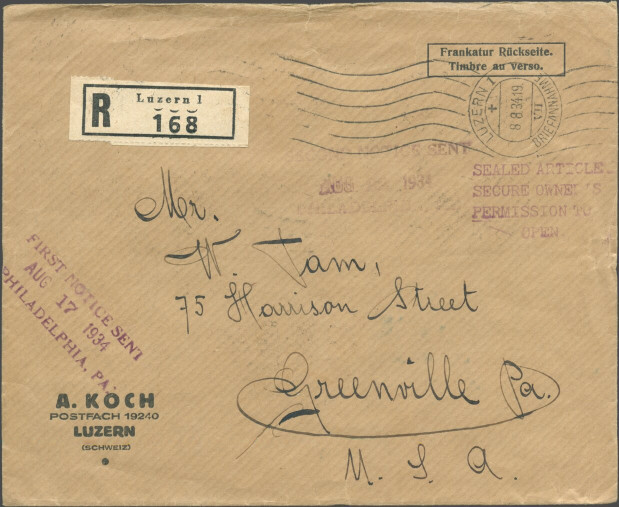 Frankatur Rückseite.
Timbre au verso.
R
Luzern 1
168
LUZERN 1
8 8.34.19
VII
BRIEFANNAHME
NOTICE SENT
1934
SEALED ARTICLE
SECURE OWNER'S
PERMISSION TO
OPEN
Mr.
W. Tam,
75 Harrison Street
Greenville Pa.
U. S. A.
FIRST NOTICE SENT
AUG 17 1934
PHILADELPHIA, PA.
A. KOCH
POSTFACH 19240
LUZERN
(SCHWEIZ)